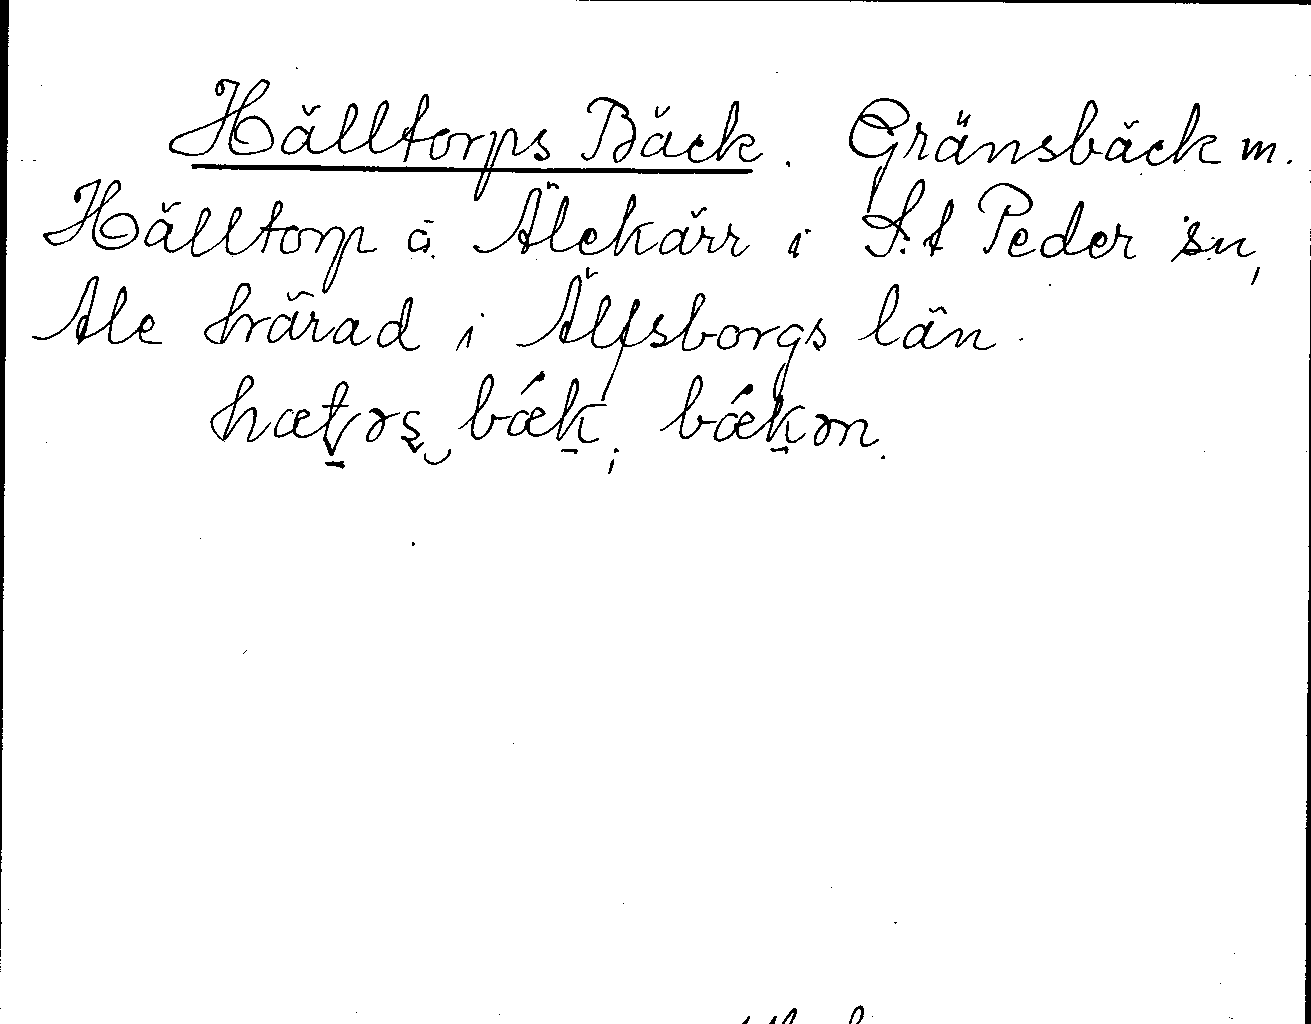 Hälltorps Bäck. Gränsbäck m.
Hälltorp å Älekärr i S:t Peder sn,
Ale härad i Älfsborgs län.
bǽk, bǽkən.